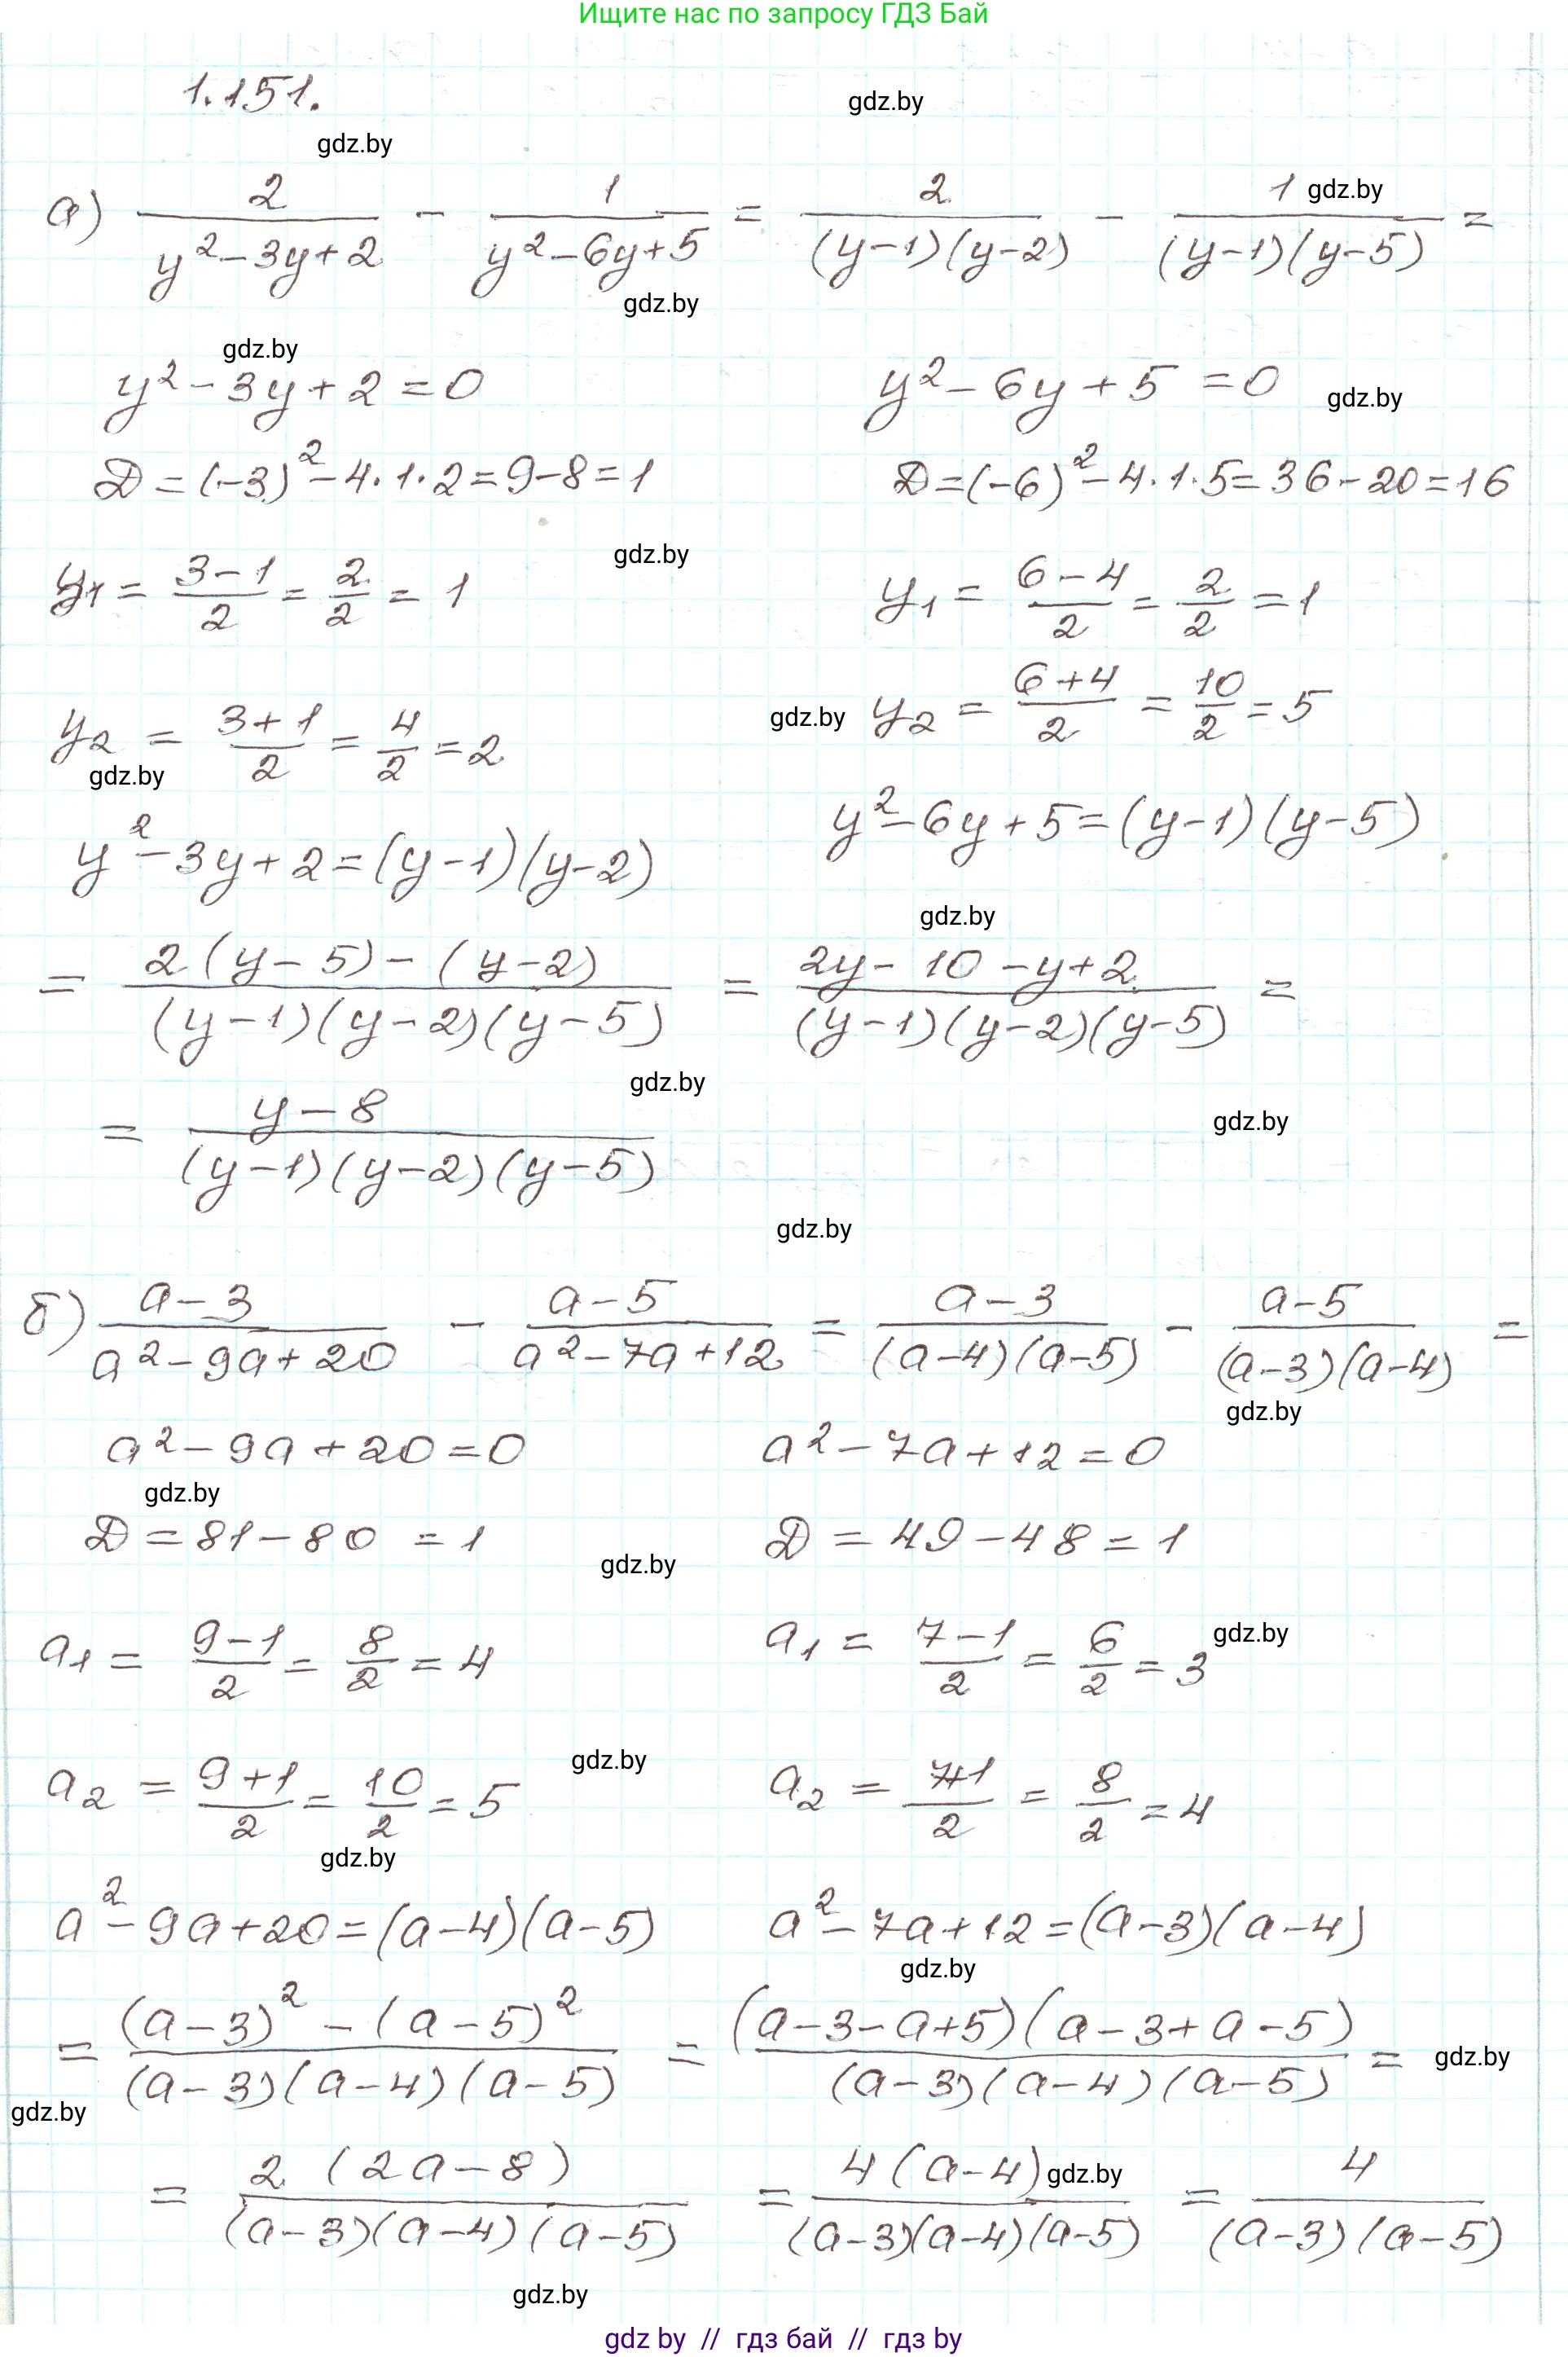 Ищите нас по запросу ГДЗ Бай
1.151.
gdz.by
gdz.by
а) 2/(y²-3y+2) - 1/(y²-6y+5) = 2/((y-1)(y-2)) - 1/((y-1)(y-5)) =
gdz.by
gdz.by
gdz.by
y²-3y+2=0
y²-6y+5=0
gdz.by
D=(-3)²-4·1·2=9-8=1
D=(-6)²-4·1·5=36-20=16
gdz.by
y₁ = (3-1)/2 = 2/2 = 1
y₁ = (6-4)/2 = 2/2 = 1
y₂ = (3+1)/2 = 4/2 = 2
gdz.by
y₂ = (6+4)/2 = 10/2 = 5
gdz.by
y²-3y+2=(y-1)(y-2)
y²-6y+5=(y-1)(y-5)
gdz.by
= (2(y-5)-(y-2))/((y-1)(y-2)(y-5)) = (2y-10-y+2)/((y-1)(y-2)(y-5)) =
gdz.by
= (y-8)/((y-1)(y-2)(y-5))
gdz.by
gdz.by
б) (a-3)/(a²-9a+20) - (a-5)/(a²-7a+12) = (a-3)/((a-4)(a-5)) - (a-5)/((a-3)(a-4)) =
gdz.by
a²-9a+20=0
a²-7a+12=0
gdz.by
D=81-80=1
D=49-48=1
gdz.by
a₁ = (9-1)/2 = 8/2 = 4
a₁ = (7-1)/2 = 6/2 = 3
gdz.by
gdz.by
a₂ = (9+1)/2 = 10/2 = 5
a₂ = (7+1)/2 = 8/2 = 4
gdz.by
a²-9a+20=(a-4)(a-5)
a²-7a+12=(a-3)(a-4)
gdz.by
= ((a-3)²-(a-5)²)/((a-3)(a-4)(a-5)) = ((a-3-a+5)(a-3+a-5))/((a-3)(a-4)(a-5)) =
gdz.by
gdz.by
= (2(2a-8))/((a-3)(a-4)(a-5)) = (4(a-4))/((a-3)(a-4)(a-5)) = 4/((a-3)(a-5))
gdz.by
gdz.by
gdz by // гдз бай // гдз by